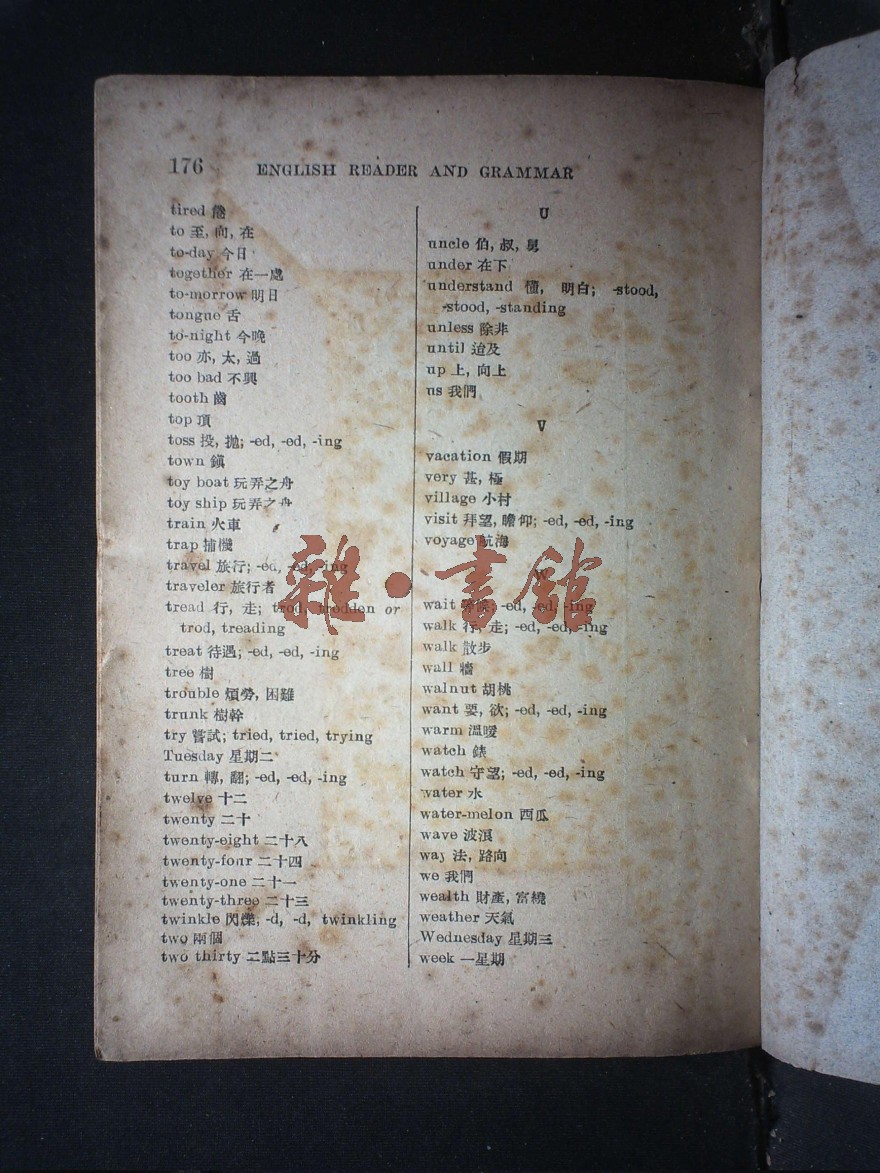 176 ENGLISH READER AND GRAMMAR
tired 倦
to 至, 向, 在
to-day 今日
together 在一處
to-morrow 明日
tongue 舌
to-night 今晚
too 亦, 太, 過
too bad 不興
tooth 齒
top 頂
toss 投, 拋; -ed, -ed, -ing
town 鎭
toy boat 玩弄之舟
toy ship 玩弄之舟
train 火車
trap 捕機
travel 旅行; -ed, -ed, -ing
traveler 旅行者
tread 行, 走; trod, trodden or
trod, treading
treat 待遇; -ed, -ed, -ing
tree 樹
trouble 煩勞, 困難
trunk 樹幹
try 嘗試; tried, tried, trying
Tuesday 星期二
turn 轉, 翻; -ed, -ed, -ing
twelve 十二
twenty 二十
twenty-eight 二十八
twenty-four 二十四
twenty-one 二十一
twenty-three 二十三
twinkle 閃爍, -d, -d, twinkling
two 兩個
two thirty 二點三十分
U
uncle 伯, 叔, 舅
under 在下
understand 懂, 明白; -stood,
-stood, -standing
unless 除非
until 迨及
up 上, 向上
us 我們
V
vacation 假期
very 甚, 極
village 小村
visit 拜望, 瞻仰; -ed, -ed, -ing
voyage 航海
W
wait -ed, -ed, -ing
walk 行, 走; -ed, -ed, -ing
walk 散步
wall 牆
walnut 胡桃
want 要, 欲; -ed, -ed, -ing
warm 溫暖
watch 錶
watch 守望; -ed, -ed, -ing
water 水
water-melon 西瓜
wave 波浪
way 法, 路向
we 我們
wealth 財產, 富繞
weather 天氣
Wednesday 星期三
week 一星期
雜·書館